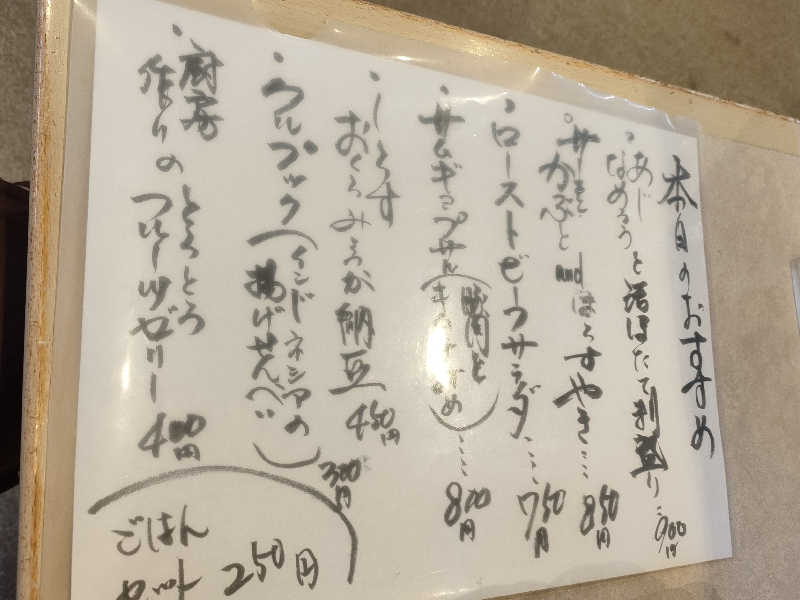 本日のおすすめ
・あじ
なめろうと活ほたて刺盛り…900円
・サーモン
かぶと and はらすやき…850円
・ローストビーフサラダ…750円
・サムギョプサル(豚肉と
キムチ炒め)…800円
・しらす
おくらみょうが納豆 450円
・クルプック(インドネシアの
揚げせんべい) 300円
・厨房
作りの とろとろ
フルーツゼリー 400円
ごはん
セット 250円